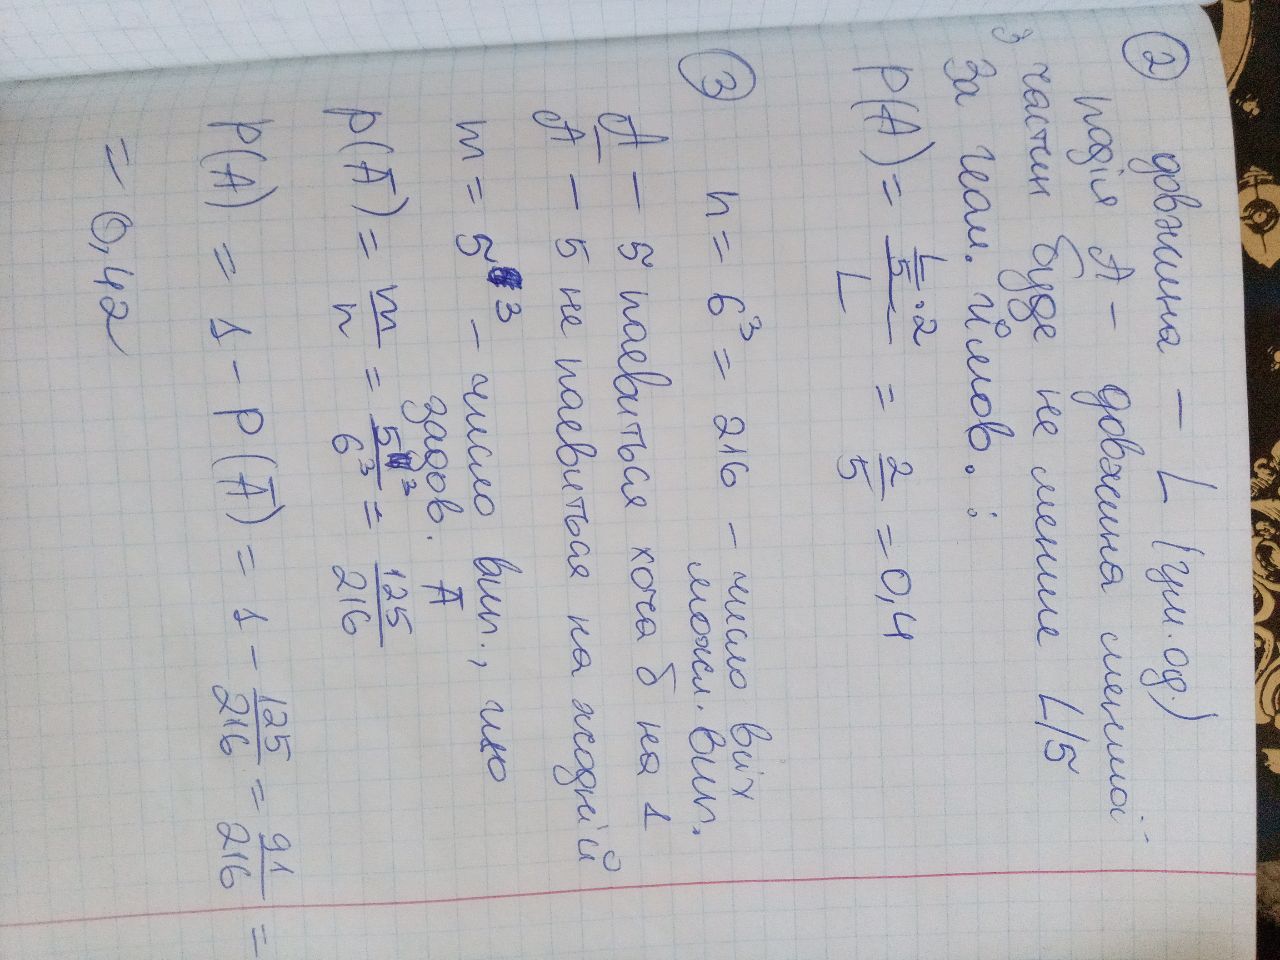 2 довжина - L (ум.од.)
подія A - довжина меншої
з частин буде не менше L/5
За геом. ймов. :
P(A) = (L/5 · 2)/L = 2/5 = 0,4
3 n = 6³ = 216 - число всіх
можл. вип.
A - 5 паявиться хоча б на 1
Ā - 5 не паявиться на жодній
m = 5³ - число вип., що
задов. Ā
p(Ā) = m/n = 5³/6³ = 125/216
P(A) = 1 - P(Ā) = 1 - 125/216 = 91/216 =
= 0,42